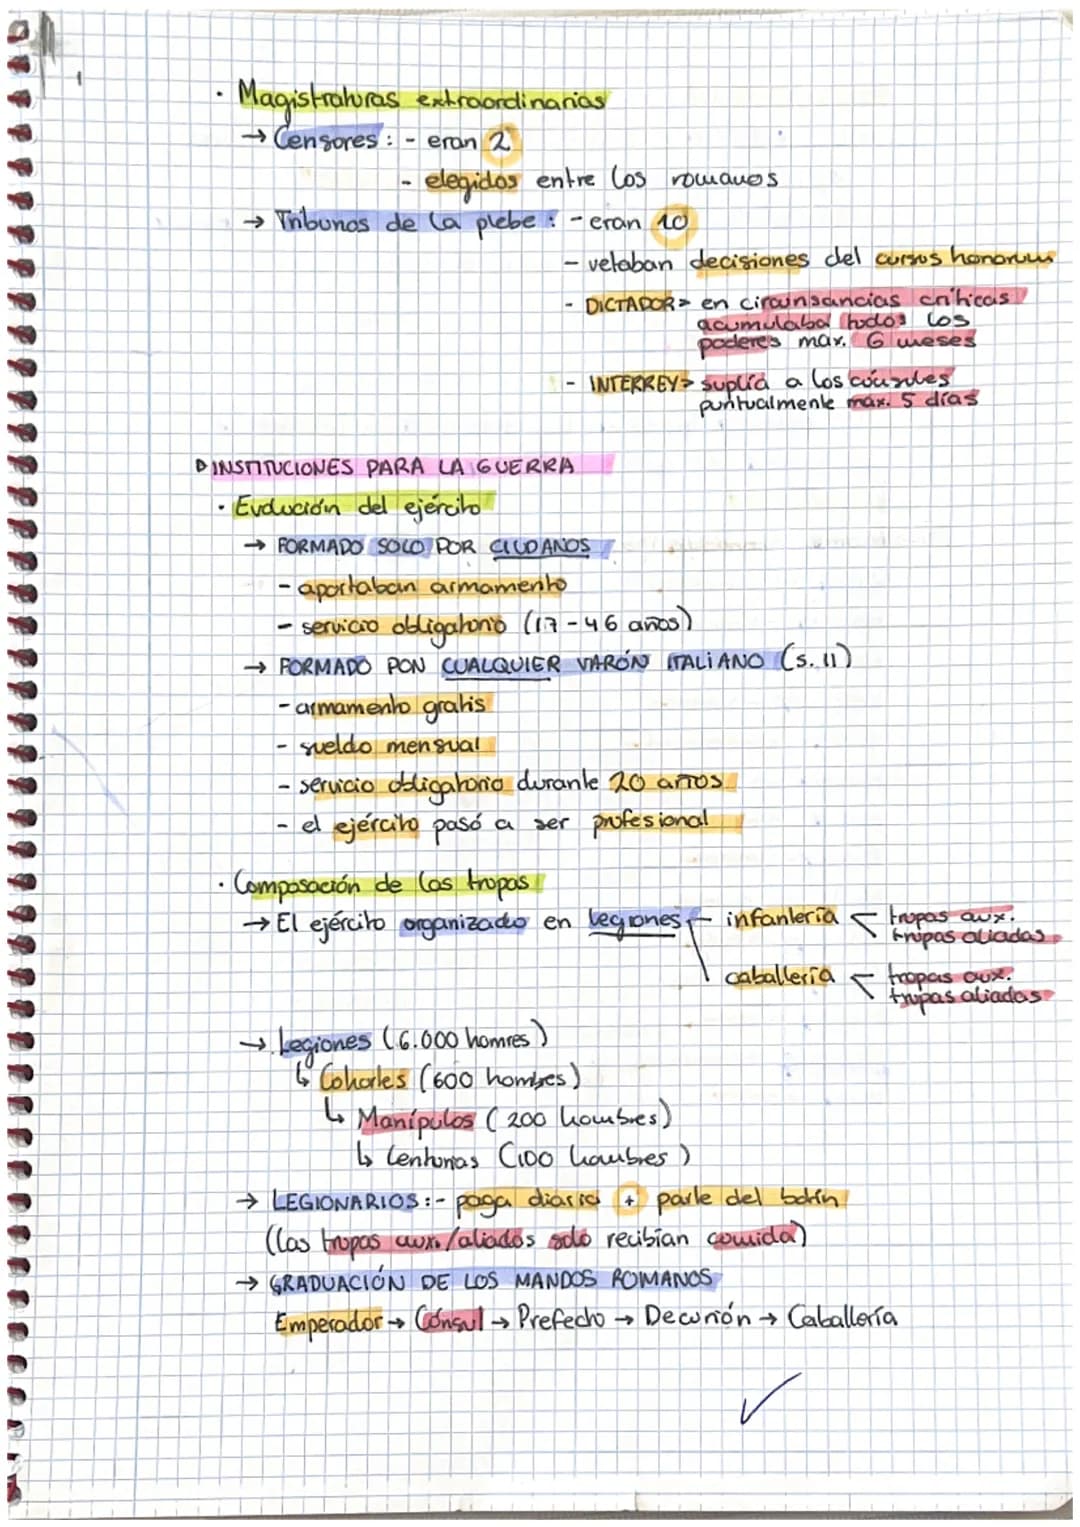 · Magistraturas extraordinarias
→ Censores: - eran 2
- elegidos entre los romanos
→ Tribunos de la plebe: - eran 10
- vetaban decisiones del cursus honorum
- DICTADOR> en circunsancias críticas
acumulaba todos los
poderes max. 6 meses
- INTERREY> suplía a los cónsules
puntualmente máx. 5 días
▷ INSTITUCIONES PARA LA GUERRA
· Evolución del ejército
→ FORMADO SOLO POR CIUDANOS
- aportaban armamento
- servicio obligatorio (17-46 años)
→ FORMADO PON CUALQUIER VARÓN ITALIANO (s. II)
- armamento gratis
- sueldo mensual
- servicio obligatorio durante 20 años
- el ejército pasó a ser profesional
· Composoción de las tropas
→ El ejército organizado en legiones - infantería < tropas aux.
tropas aliadas
caballería < tropas aux.
tropas aliadas
→ Legiones (6.000 homres)
↳ Cohortes (600 hombres)
↳ Manípulos (200 hombres)
↳ Centurias (100 hombres)
→ LEGIONARIOS: - paga diaria + parte del botín
(las tropas aux./aliados solo recibían comida)
→ GRADUACIÓN DE LOS MANDOS ROMANOS
Emperador → Cónsul → Prefecto → Decurión → Caballería